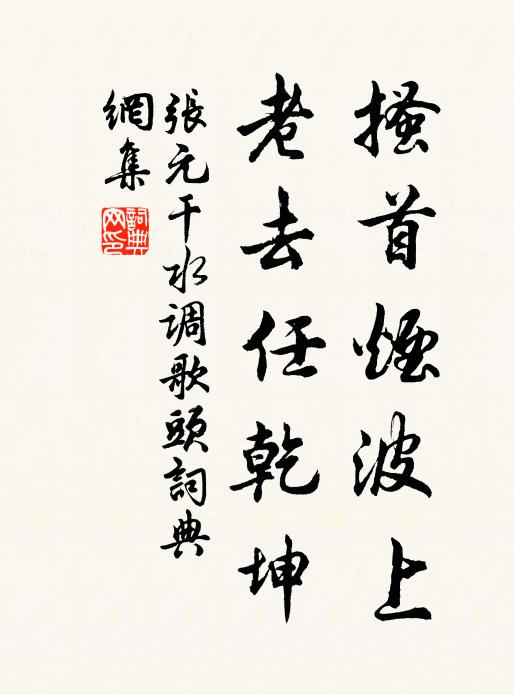 搔首煙波上
老去任乾坤
張元干水调歌頭詞典
網集
詞典網印